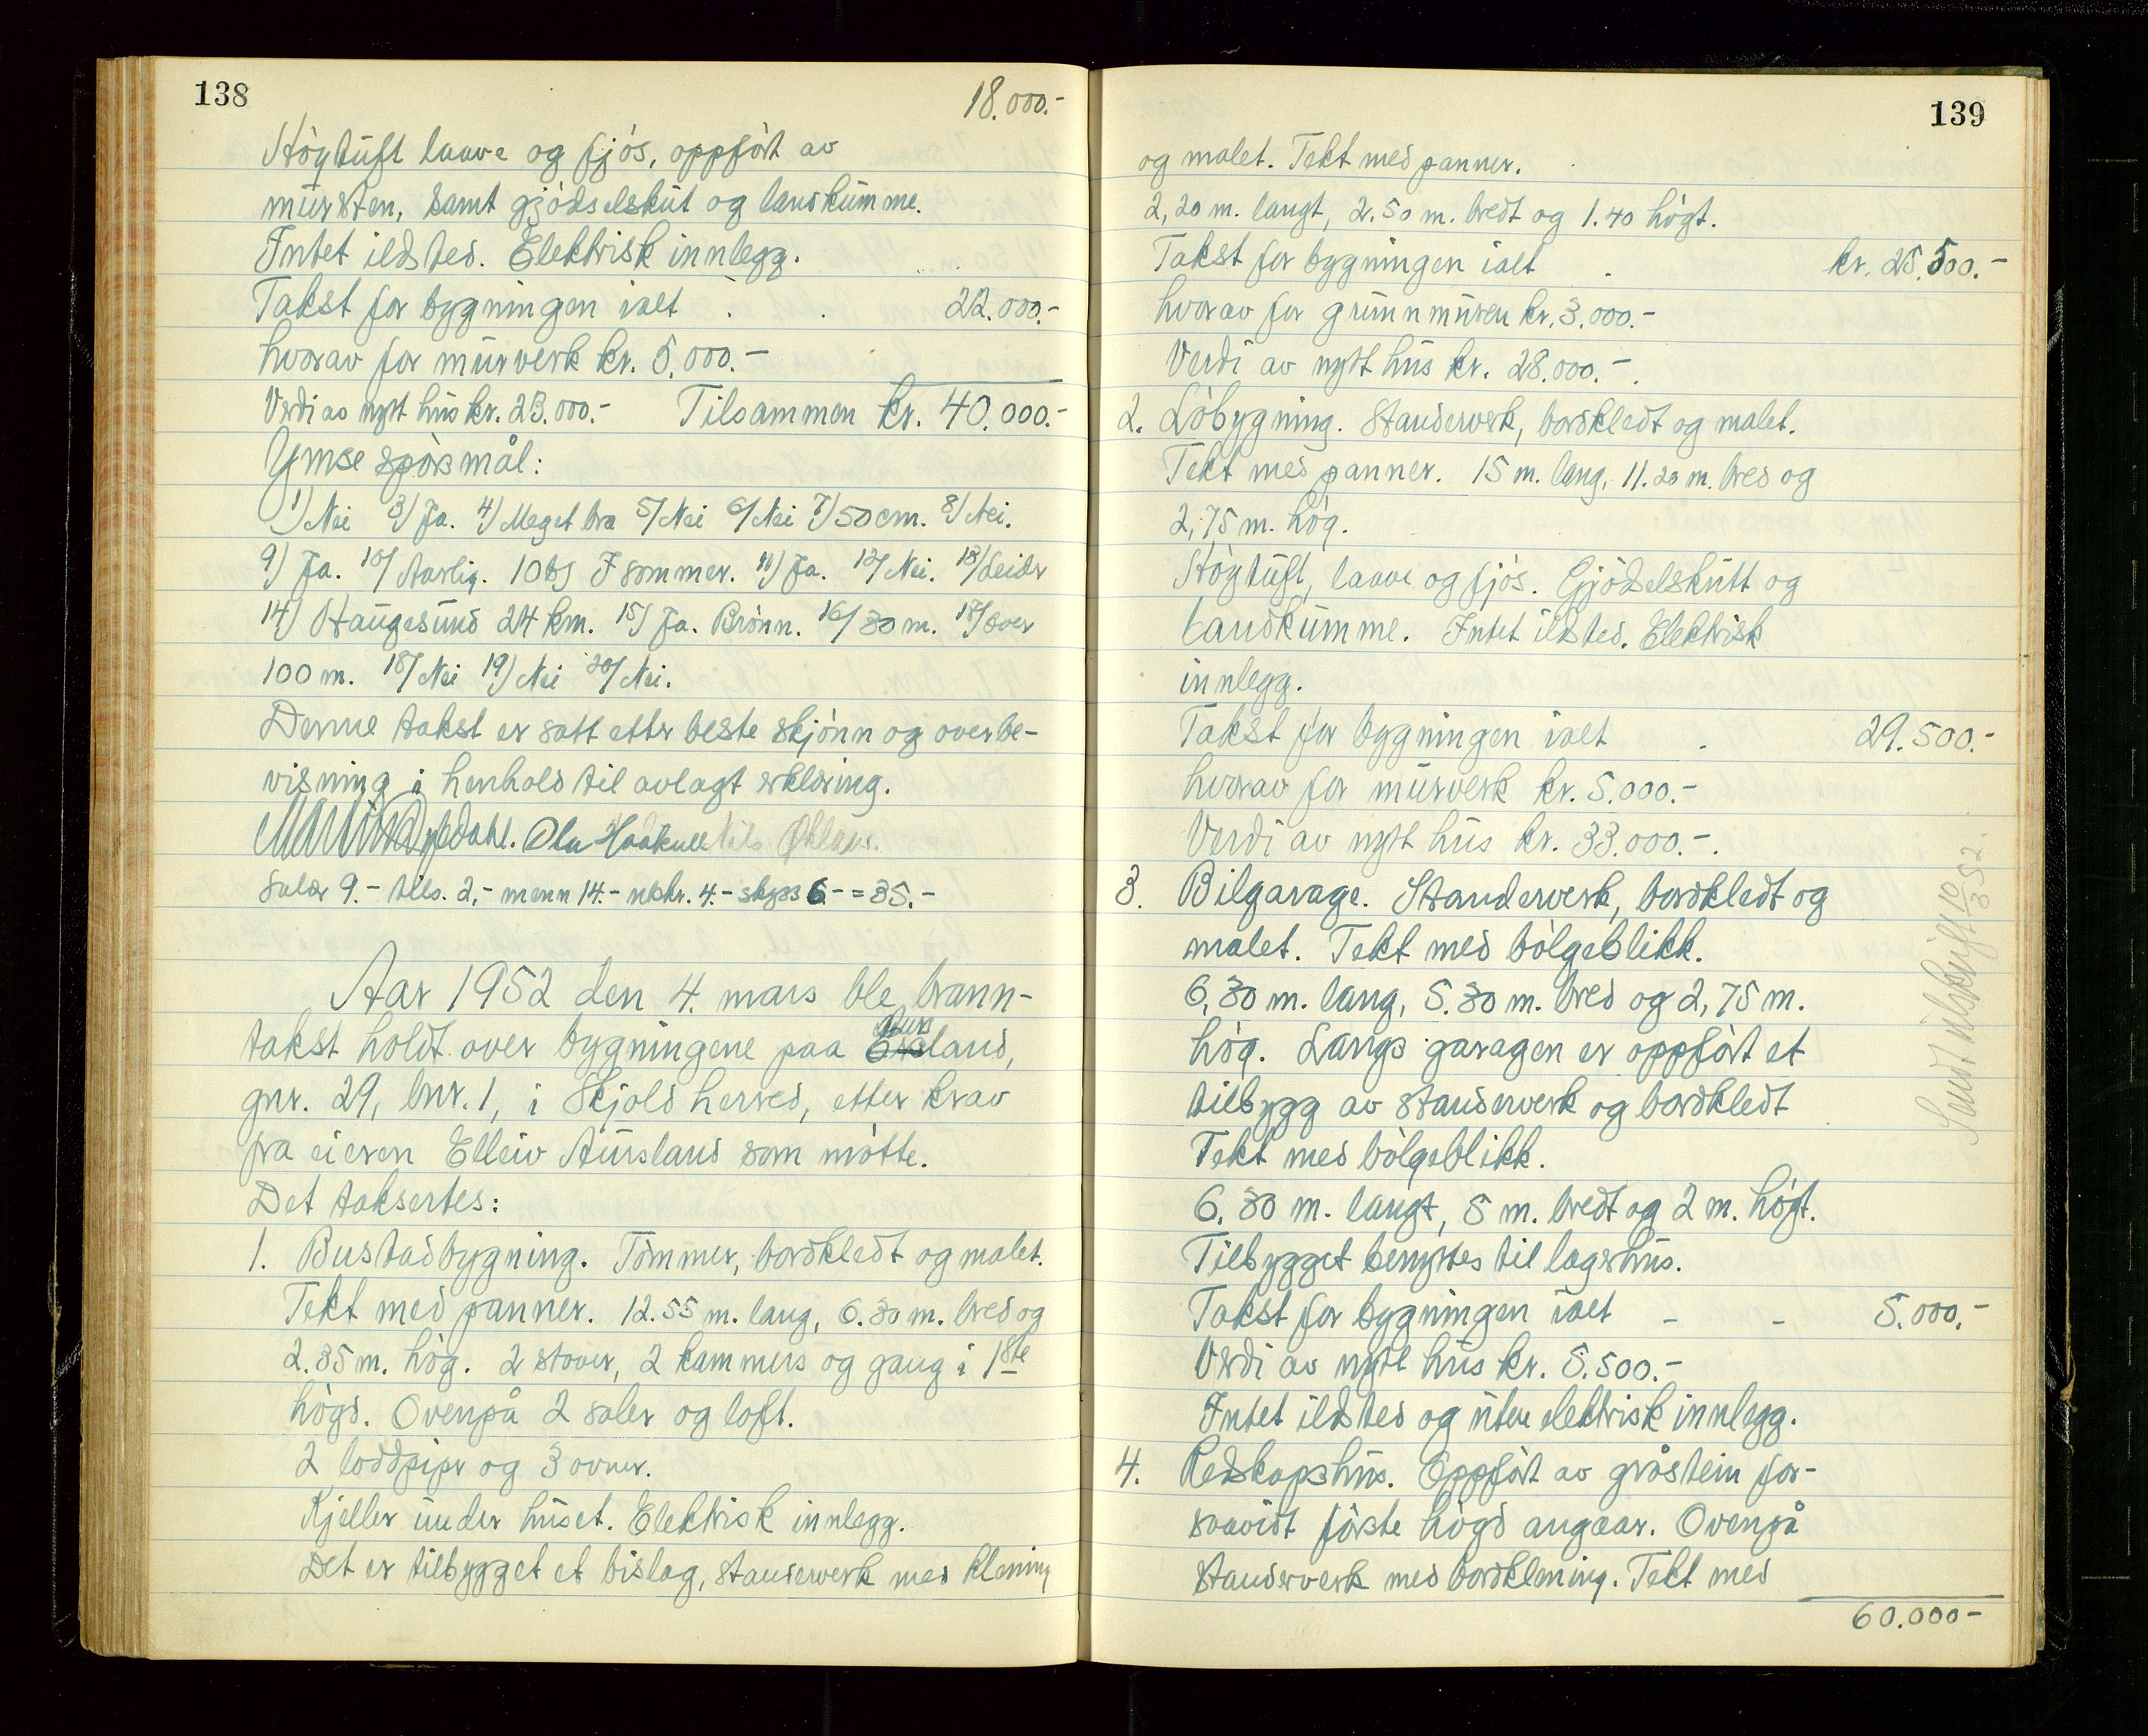 138
18.000.-
Högtuft laave og fjös, oppfört av
mursten, samt gjödselskut og landkumme.
Intet ildsted. Elektrisk innlegg.
Takst for bygningen ialt . . 22.000.-
hvorav for murverk kr. 5.000.-
Verdi av nytt hus kr. 23.000.- Tilsammen kr. 40.000.-
Ymse spörsmål:
1) Nei 3) Ja. 4) Meget bra 5) Nei 6) Nei 7) 50 cm. 8) Nei.
9) Ja. 10) Aarlig. I sommer. 11) Ja. 12) Nei. 13) Leider
14) Haugesund 24 km. 15) Ja. Brönn. 16) 30 m. 17) over
100 m. 18) Nei 19) Nei 20) Nei.
Denne takst er satt etter beste skjönn og overbe-
visning i henhold til avlagt erklæring.
Ola
Salær 9.- tills. 2,- menn 14.- utskr. 4.- skyss 6.- = 35.-
Aar 1952 den 4. mars ble brann-
takst holdt over bygningene paa Aursland,
gnr. 29, bnr. 1, i Skjold herred, etter krav
fra eieren Elleiv Aursland som mötte.
Det taksertes:
1. Bustadbygning. Tömmer, bordkledt og malet.
Tekt med panner. 12.55 m. lang, 6.30 m. bred og
2.35 m. hög. 2 stover, 2 kammers og gang i 1ste
högd. Ovenpå 2 saler og loft.
2 loddpiper og 3 ovner.
Kjeller under huset. Elektrisk innlegg.
Det er tilbygget et bislag, standerverk med kledning
139
og malet. Tekt med panner.
2,20 m. langt, 2.50 m. bredt og 1.40 högt.
Takst for bygningen ialt . kr. 25.500.-
hvorav for grunnmuren kr. 3.000.-
Verdi av nytt hus kr. 28.000.-.
2. Löbygning. Standerverk, bordkledt og malet.
Tekt med panner. 15 m. lang, 11.20 m. bred og
2,75 m. hög.
Högtuft, laave og fjös. Gjödselskutt og
landkumme. Intet ildsted. Elektrisk
innlegg.
Takst for bygningen ialt . 29.500.-
hvorav for murverk kr. 5.000.-
Verdi av nytt hus kr. 33.000.-.
3. Bilgarage. Standerverk, bordkledt og
malet. Tekt med bölgeblikk.
6,30 m. lang, 5.30 m. bred og 2,75 m.
hög. Langs garagen er oppfört et
tilbygg av standerverk og bordkledt
Tekt med bölgeblikk.
6.30 m. langt, 5 m. bredt og 2 m. högt.
Tilbygget benyttes til lagerhus.
Takst for bygningen ialt - - 5.000.-
Verdi av nytt hus kr. 5.500.-
Intet ildsted og uten elektrisk innlegg.
4. Redskapshus. Oppfört av gråstein for-
saavidt förste högd angaar. Ovenpå
standerverk med bordkledning. Tekt med
60.000-
Sendt utskrift 10/3 52.